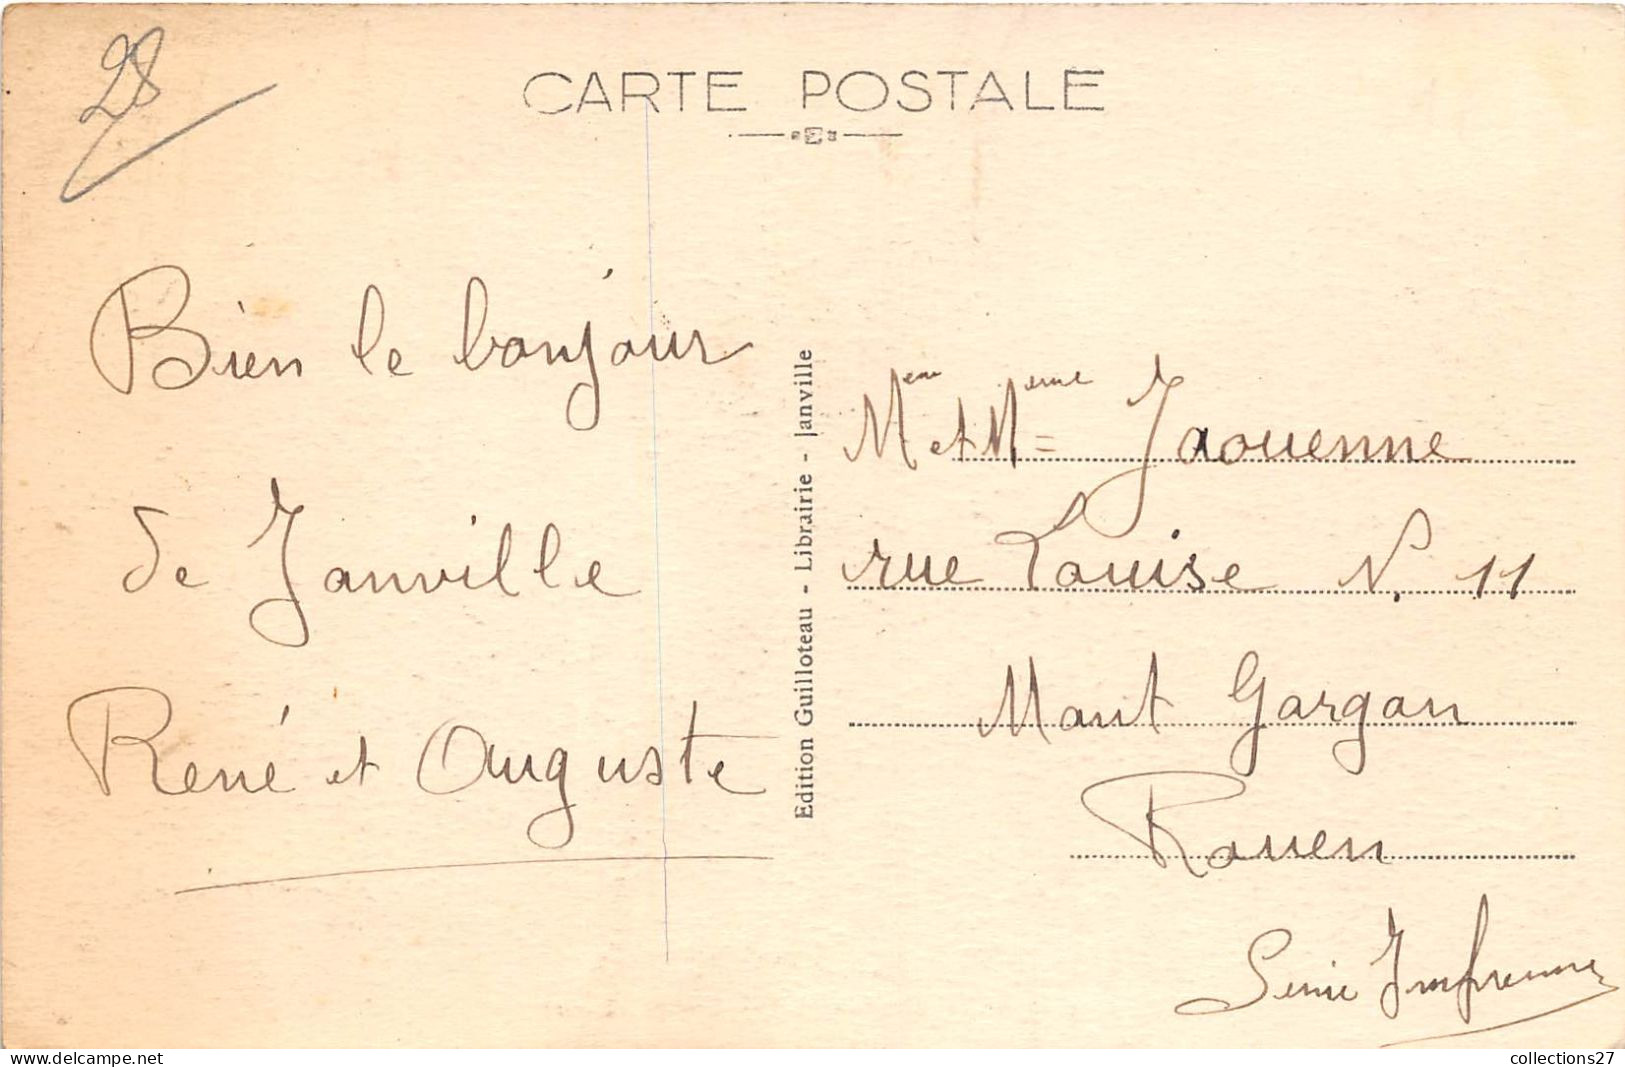 28
CARTE POSTALE
Bien le bonjour
de Janville
René et Auguste
Edition Guilloteau - Librairie - Janville
Meur et Meme Jaouenne
rue Louise N. 11
Mont Gargan
Rouen
collections27